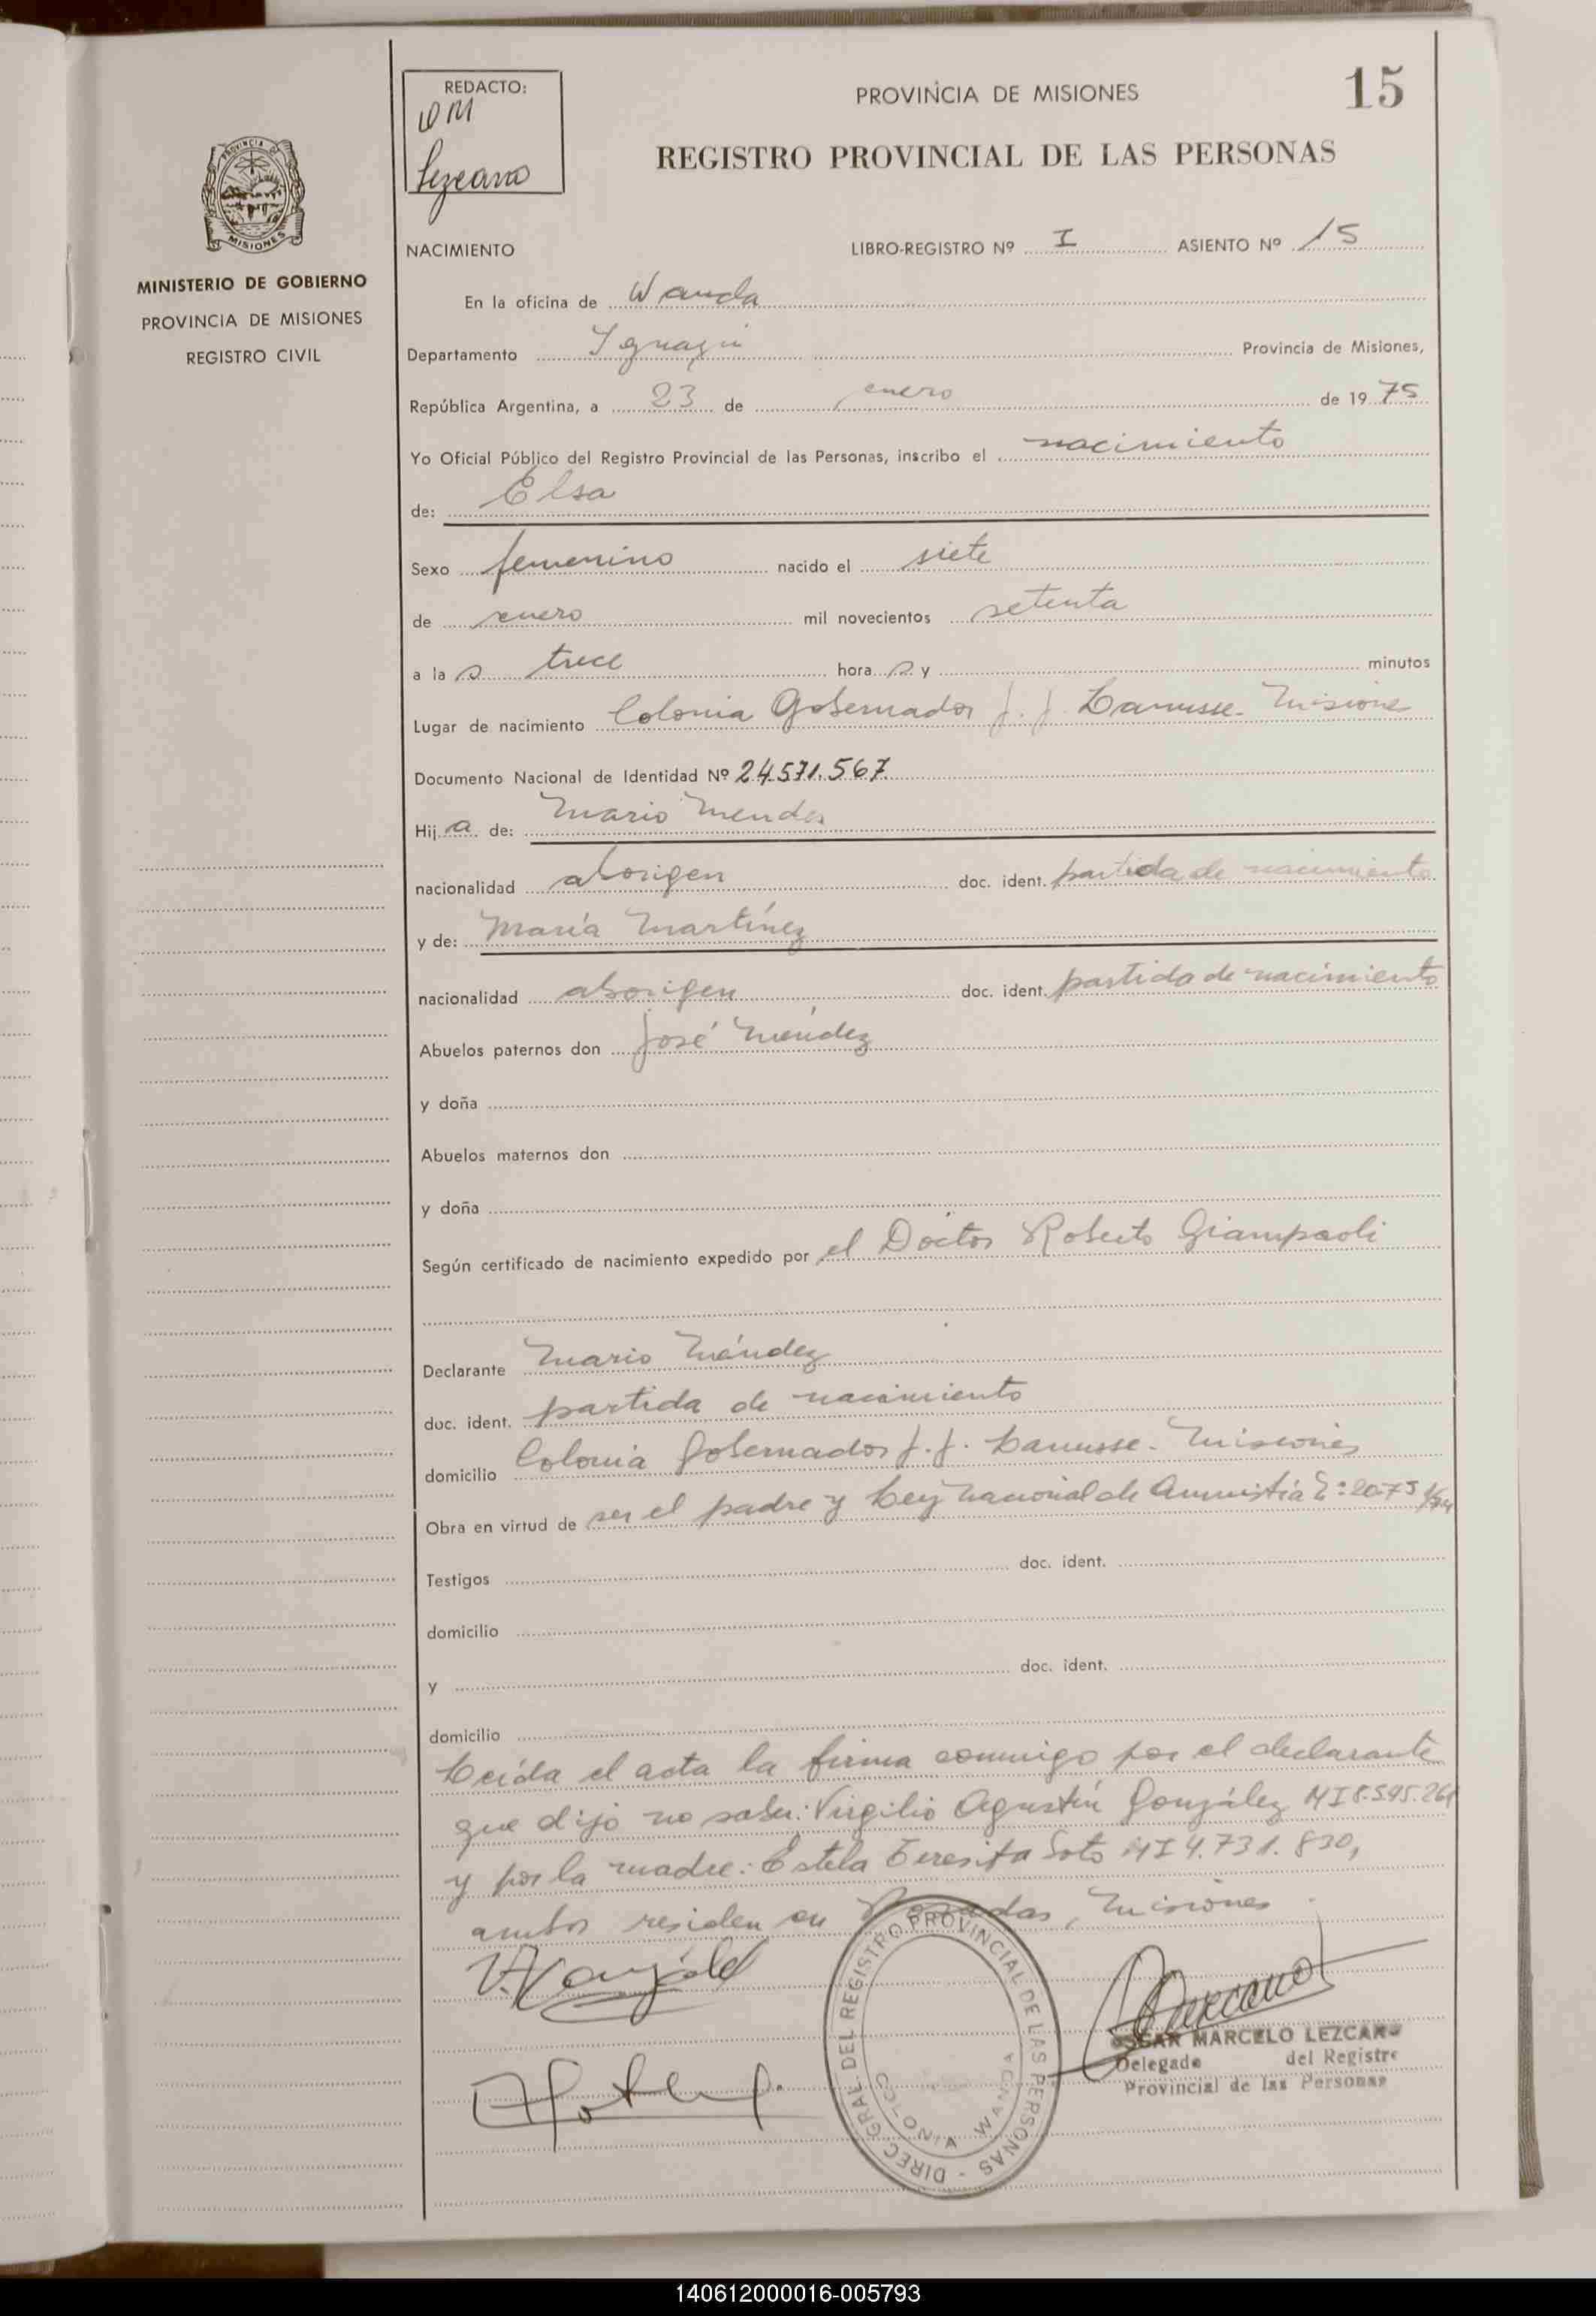 REDACTO:
OM
Lezcano
PROVINCIA DE MISIONES
15
REGISTRO PROVINCIAL DE LAS PERSONAS
PROVINCIA DE
MISIONES
MINISTERIO DE GOBIERNO
PROVINCIA DE MISIONES
REGISTRO CIVIL
NACIMIENTO LIBRO-REGISTRO Nº I ASIENTO Nº 15
En la oficina de Wanda
Departamento Iguazú Provincia de Misiones,
República Argentina, a 23 de enero de 1975
Yo Oficial Público del Registro Provincial de las Personas, inscribo el nacimiento
de: Elsa
Sexo femenino nacido el siete
de enero mil novecientos setenta
a las trece horas y minutos
Lugar de nacimiento Colonia Gobernador J. J. Lanusse - Misiones
Documento Nacional de Identidad Nº 24.571.567
Hija de: Mario Mendez
nacionalidad aborigen doc. ident. partida de nacimiento
y de: María Martínez
nacionalidad aborigen doc. ident. partida de nacimiento
Abuelos paternos don José Méndez
y doña
Abuelos maternos don
y doña
Según certificado de nacimiento expedido por el Doctor Roberto Giampaoli
Declarante Mario Méndez
doc. ident. partida de nacimiento
domicilio Colonia Gobernador J. J. Lanusse - Misiones
Obra en virtud de ser el padre y Ley Nacional de Amnistía
Testigos doc. ident.
domicilio
y doc. ident.
domicilio
Leída el acta la firma conmigo por el declarante
que dijo no saber: Virgilio Agustín González MI 8.595.261
y por la madre: Estela Teresita Soto MI 4.731.830,
ambos residen en Posadas, Misiones
DIREC. GRAL. DEL REGISTRO PROVINCIAL DE LAS PERSONAS -
COLONIA WANDA
OSCAR MARCELO LEZCANO
Delegado del Registro
Provincial de las Personas
140612000016-005793